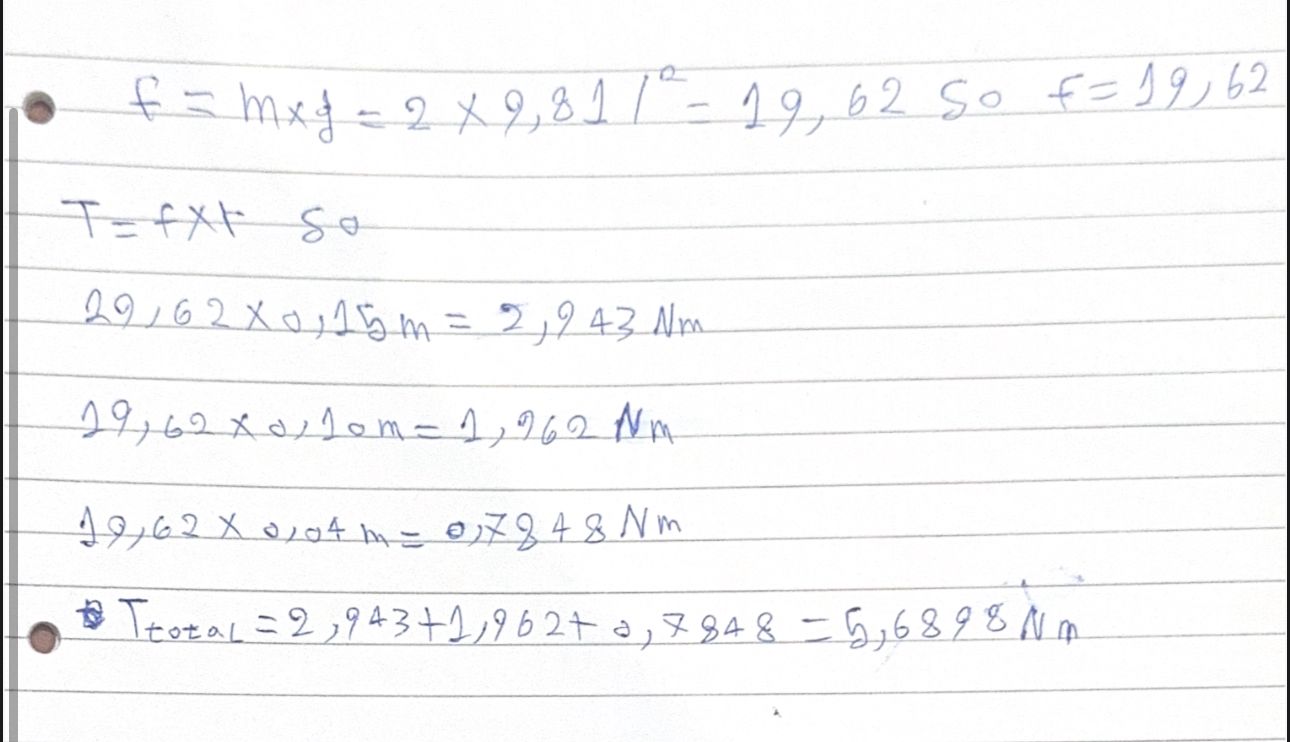 f = m×g = 2 × 9,81 /² = 19,62 So f = 19,62
T = f×r So
19,62 × 0,15 m = 2,943 Nm
19,62 × 0,10 m = 1,962 Nm
19,62 × 0,04 m = 0,7848 Nm
Ttotal = 2,943 + 1,962 + 0,7848 = 5,6898 Nm